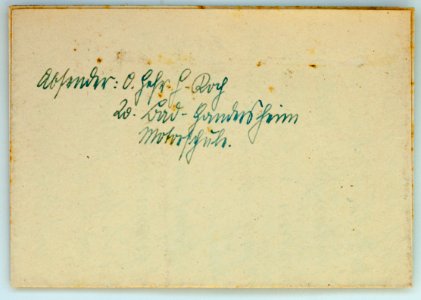 Absender: O. Gefr. H. Roch
20. Bad-Gandersheim
Motorschule.